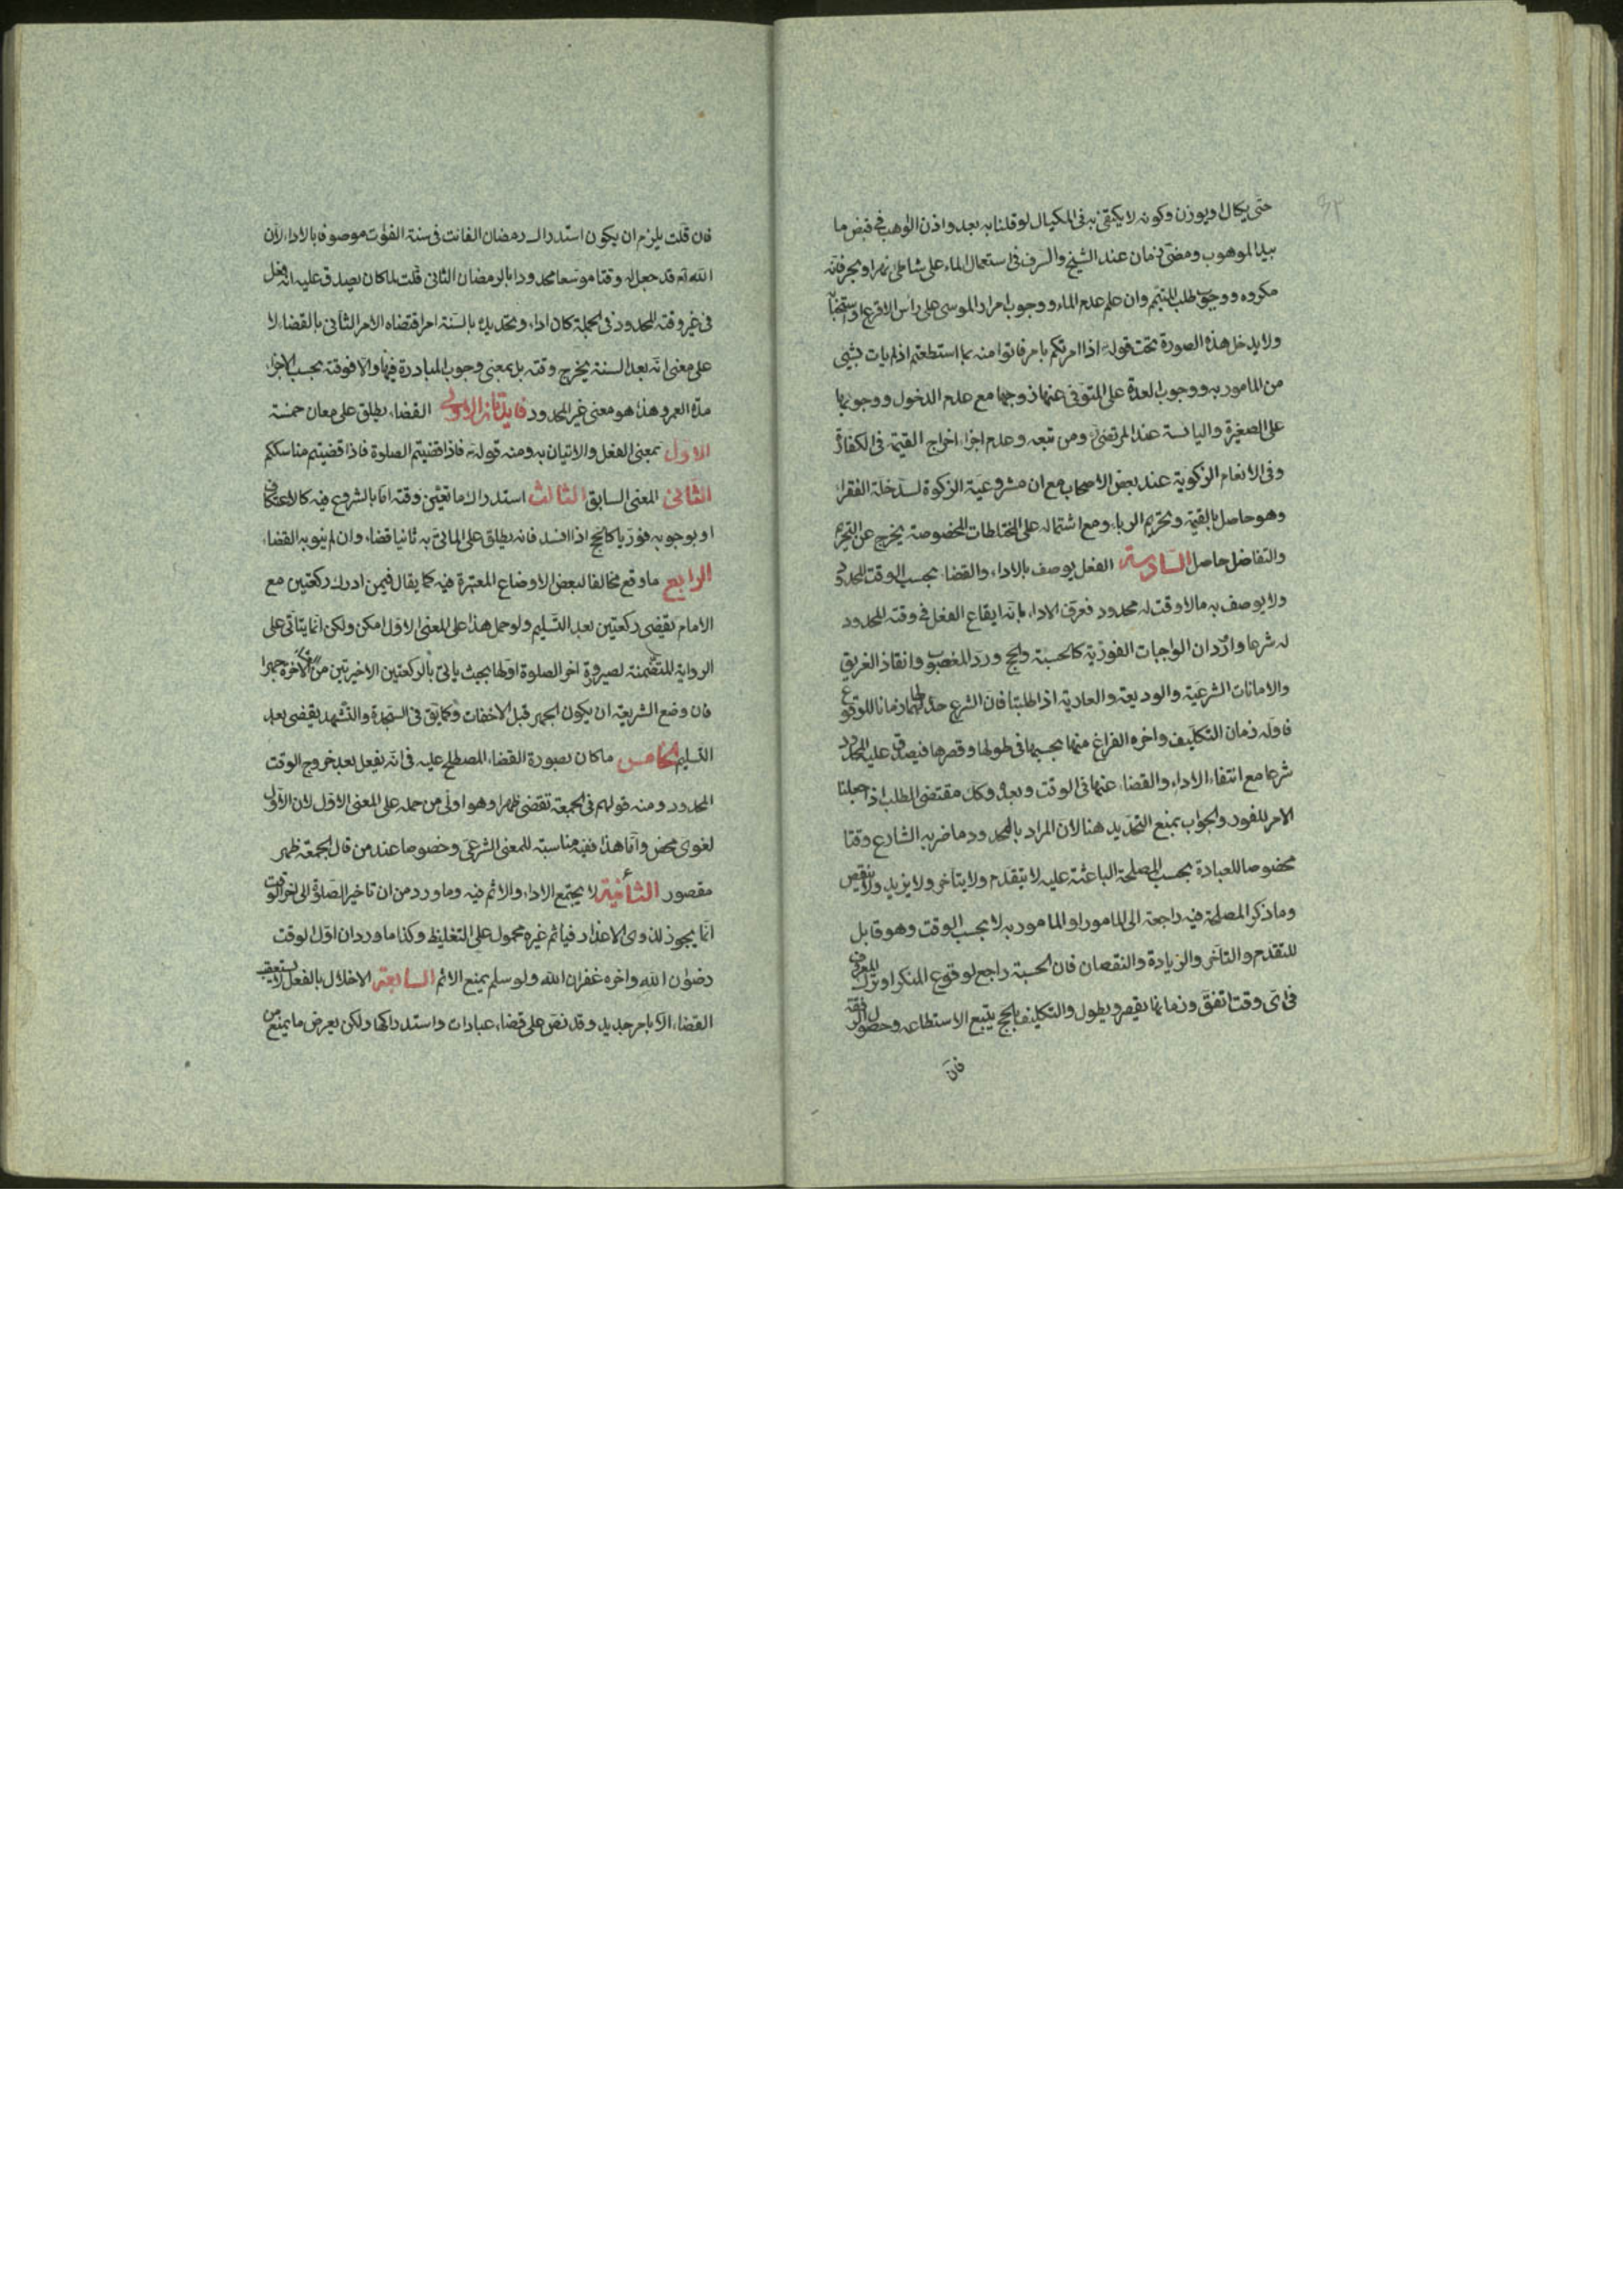 ٤٢
حتى يكال او يوزن وكونه لا يكتفى به فى المكيال لو قلنا به بعد واذن الواهب فى قبض ما
بيد الموهوب ومضى زمان عند الشيخ والسرف فى استعمال الماء على شاطئ نهر او بحر فانه
مكروه ووجوب طلب المتيمم وان علم عدم الماء ووجوب امرار الموسى على راس الاقرع او استحبابه
ولا يدخل هذه الصورة تحت قوله اذا امرتكم بامر فاتوا منه بما استطعتم اذ لم يات بشئ
من المامور به ووجوب العدة على المتوفى عنها زوجها مع عدم الدخول ووجوبها
على الصغيرة واليائسة عند المرتضى ومن تبعه وعدم اجزاء اخراج القيمة فى الكفارة
وفى الانعام الزكوية عند بعض الاصحاب مع ان مشروعية الزكوة لسد خلة الفقراء
وهو حاصل بالقيمة وتحريم الربا ومع اشتماله على المختلطات المخصوصة يخرج عن التحريم
والتفاضل حاصل السادسة الفعل يوصف بالاداء والقضاء بحسب الوقت المحدود
ولا يوصف به ما لا وقت له محدود فعرف الاداء بانه ايقاع الفعل فى وقته المحدود
له شرعا واورد ان الواجبات الفورية كالحسبة والحج ورد المغصوب وانقاذ الغريق
والامانات الشرعية والوديعة والعارية اذا طلبتا فان الشرع حد لها زمانا للوقوع
فاوله زمان التكليف واخره الفراغ منها بحسبها فى طولها وقصرها فيصدق عليه المحدود
شرعا مع انتفاء الاداء والقضاء عنها فى الوقت وبعده وكك مقتضى الطلب اذا جعلنا
الامر للفور والجواب بمنع التحديد هنا لان المراد بالمحدود ما ضربه الشارع وقتا
مخصوصا للعبادة بحسب المصلحة الباعثة عليه لا يتقدم ولا يتاخر ولا يزيد ولا ينقص
وما ذكر المصلحة فيه راجعة الى المامور او المامور به لا بحسب الوقت وهو قابل
للتقدم والتاخر والزيادة والنقصان فان الحسبة راجع لوقوع المنكر او ترك المعروف
فى اى وقت اتفق وزمانها يقصر ويطول والتكليف بالحج يتبع الاستطاعة وحصول الرفقة
فان
فان قلت يلزم ان يكون استدراك رمضان الفائت فى سنة الفوات موصوفا بالاداء لان
الله تم قد جعل له وقتا موسعا محدودا بالرمضان الثانى قلت لما كان يصدق عليه انه فعل
فى غير وقته المحدود فى الجملة كان اداء وتحديده بالسنة امر اقتضاه الامر الثانى بالقضاء لا
على معنى انه بعد السنة يخرج وقته بل بمعنى وجوب المبادرة فيها والا فوقته بحسب الاجزاء
مدة العمر وهذا هو معنى غير المحدود فايدتان الاولى القضاء يطلق على معان خمسة
الاول بمعنى الفعل والاتيان به ومنه قوله تم فاذا قضيتم الصلوة فاذا قضيتم مناسككم
الثانى المعنى السابق الثالث استدراك ما تعين وقته اما بالشروع فيه كالاعتكاف
او بوجوبه فوريا كالحج اذا افسد فانه يطلق على الماتى به ثانيا قضاء وان لم ينو به القضاء
الرابع ما وقع مخالفا لبعض الاوضاع المعتبرة فيه كما يقال فيمن ادرك ركعتين مع
الامام يقضى ركعتين بعد التسليم ولو حمل هذا على المعنى الاول امكن ولكن انما يتاتى على
الرواية المتضمنة لصيرورة اخر الصلوة اولها بحيث ياتى بالركعتين الاخيرتين جهرا
فان وضع الشريعة ان يكون الجهر قبل الاخفات وكما يق فى السجدة والتشهد يقضى بعد
التسليم الخامس ما كان بصورة القضاء المصطلح عليه فى انه يفعل بعد خروج الوقت
المحدود ومنه قولهم فى الجمعة تقضى ظهرا وهو اولى من حمله على المعنى الاول لان الاول
لغوى محض واما هذا ففيه مناسبة للمعنى الشرعى وخصوصا عند من قال الجمعة ظهر
مقصور الثانية لا يجتمع الاداء والاثم فيه وما ورد من ان تاخير الصلوة الى اخر الوقت
انما يجوز لذوى الاعذار فياثم غيره محمول على التغليظ وكذا ما ورد ان اول الوقت
رضوان الله واخره غفران الله ولو سلم يمنع الاثم السابعة الاخلال بالفعل لا يستعقب
القضاء الا بامر جديد وقد نص على قضاء عبادات واستدراكها ولكن يعرض ما يمنع من